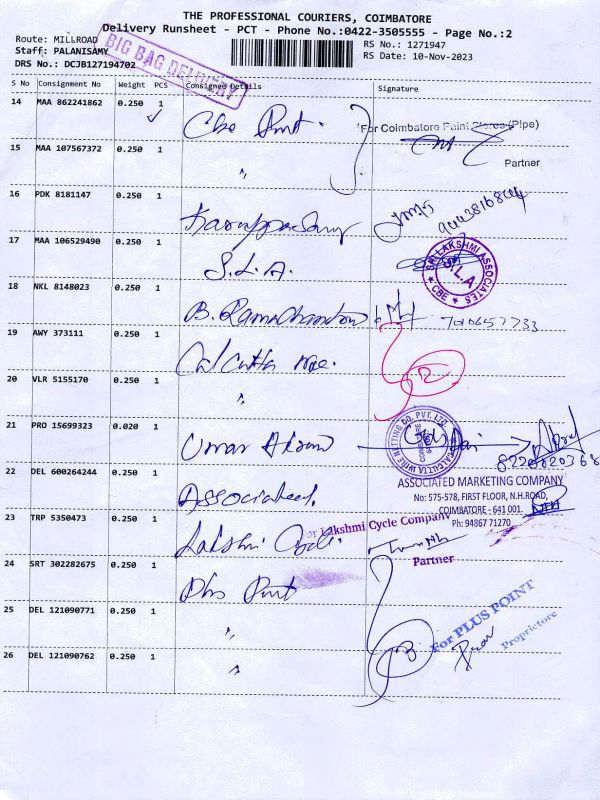 THE PROFESSIONAL COURIERS, COIMBATORE
Delivery Runsheet - PCT - Phone No.:0422-3505555 - Page No.:2
Route: MILLROAD
RS No.: 1271947
Staff: PALANISAMY
RS Date: 10-Nov-2023
DRS No.: DCJB127194702
BIG BAG DELIVERY
S No Consignment No Weight PCS Consignee Details Signature
14 MAA 862241862 0.250 1
For Coimbatore Paint Stores (Pipe)
Partner
15 MAA 107567372 0.250 1 "
16 PDK 8181147 0.250 1
Karuppasamy
17 MAA 106529490 0.250 1 S.L.A.
SRI LAKSHMI ASSOCIATES
S.L.A
★ CBE ★
18 NKL 8148023 0.250 1
B. Ramachandran
19 AWY 373111 0.250 1
Calcutta
20 VLR 5155170 0.250 1 "
21 PRO 15699323 0.020 1
Umar
CALCUTTA WIRE NETTING CO. PVT. LTD.
8220820368
22 DEL 600264244 0.250 1 Associated.
ASSOCIATED MARKETING COMPANY
No: 575-578, FIRST FLOOR, N.H.ROAD,
COIMBATORE - 641 001.
Ph: 94867 71270
23 TRP 5350473 0.250 1 Lakshmi Cycle.
For Lakshmi Cycle Company
Partner
24 SRT 302282675 0.250 1
Plus Point
25 DEL 121090771 0.250 1 "
For PLUS POINT
Proprietore
26 DEL 121090762 0.250 1 "